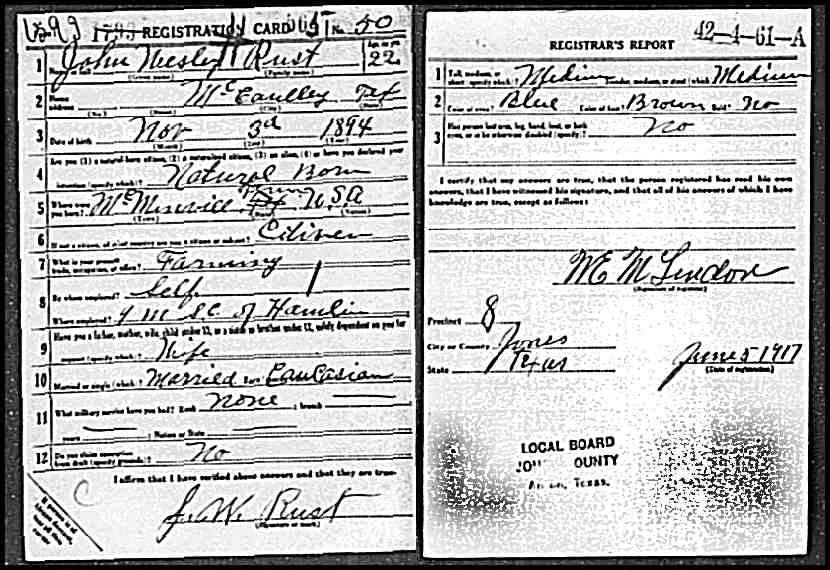 1793 REGISTRATION CARD No. 50
1 John Wesley Rust Age, in yrs. 22
(Given name) (Family name)
2 Home address McCaulley Tex
(No.) (Street) (City) (State)
3 Date of birth Nov 3rd 1894
(Month) (Day) (Year)
4 Are you (1) a natural-born citizen, (2) a naturalized citizen, (3) an alien, (4) or have you declared your
intention (specify which)? Natural Born
5 Where were you born? McMinvill Tenn U.S.A
(Town) (State) (Nation)
6 If not a citizen, of what country are you a citizen or subject? Citizen
7 What is your present trade, occupation, or office? Farming
8 By whom employed? Self
Where employed? 4 M S.E. of Hamlin
9 Have you a father, mother, wife, child under 12, or a sister or brother under 12, solely dependent on you for
support (specify which)? Wife
10 Married or single (which)? Married Race Caucasian
11 What military service have you had? Rank None ; branch
years ; Nation or State
12 Do you claim exemption from draft (specify grounds)? No
I affirm that I have verified above answers and that they are true.
J. W. Rust
(Signature or mark)
42-4-61-A
REGISTRAR'S REPORT
1 Tall, medium, or short (specify which)? Medium Slender, medium, or stout (which)? Medium
2 Color of eyes? Blue Color of hair? Brown Bald? No
3 Has person lost arm, leg, hand, foot, or both eyes, or is he otherwise disabled (specify)? No
I certify that my answers are true, that the person registered has read his own
answers, that I have witnessed his signature, and that all of his answers of which I have
knowledge are true, except as follows:
W E McLendon
(Signature of registrar)
Precinct 8
City or County Jones
State Texas
June 5 1917
(Date of registration)
LOCAL BOARD
COUNTY
Texas.